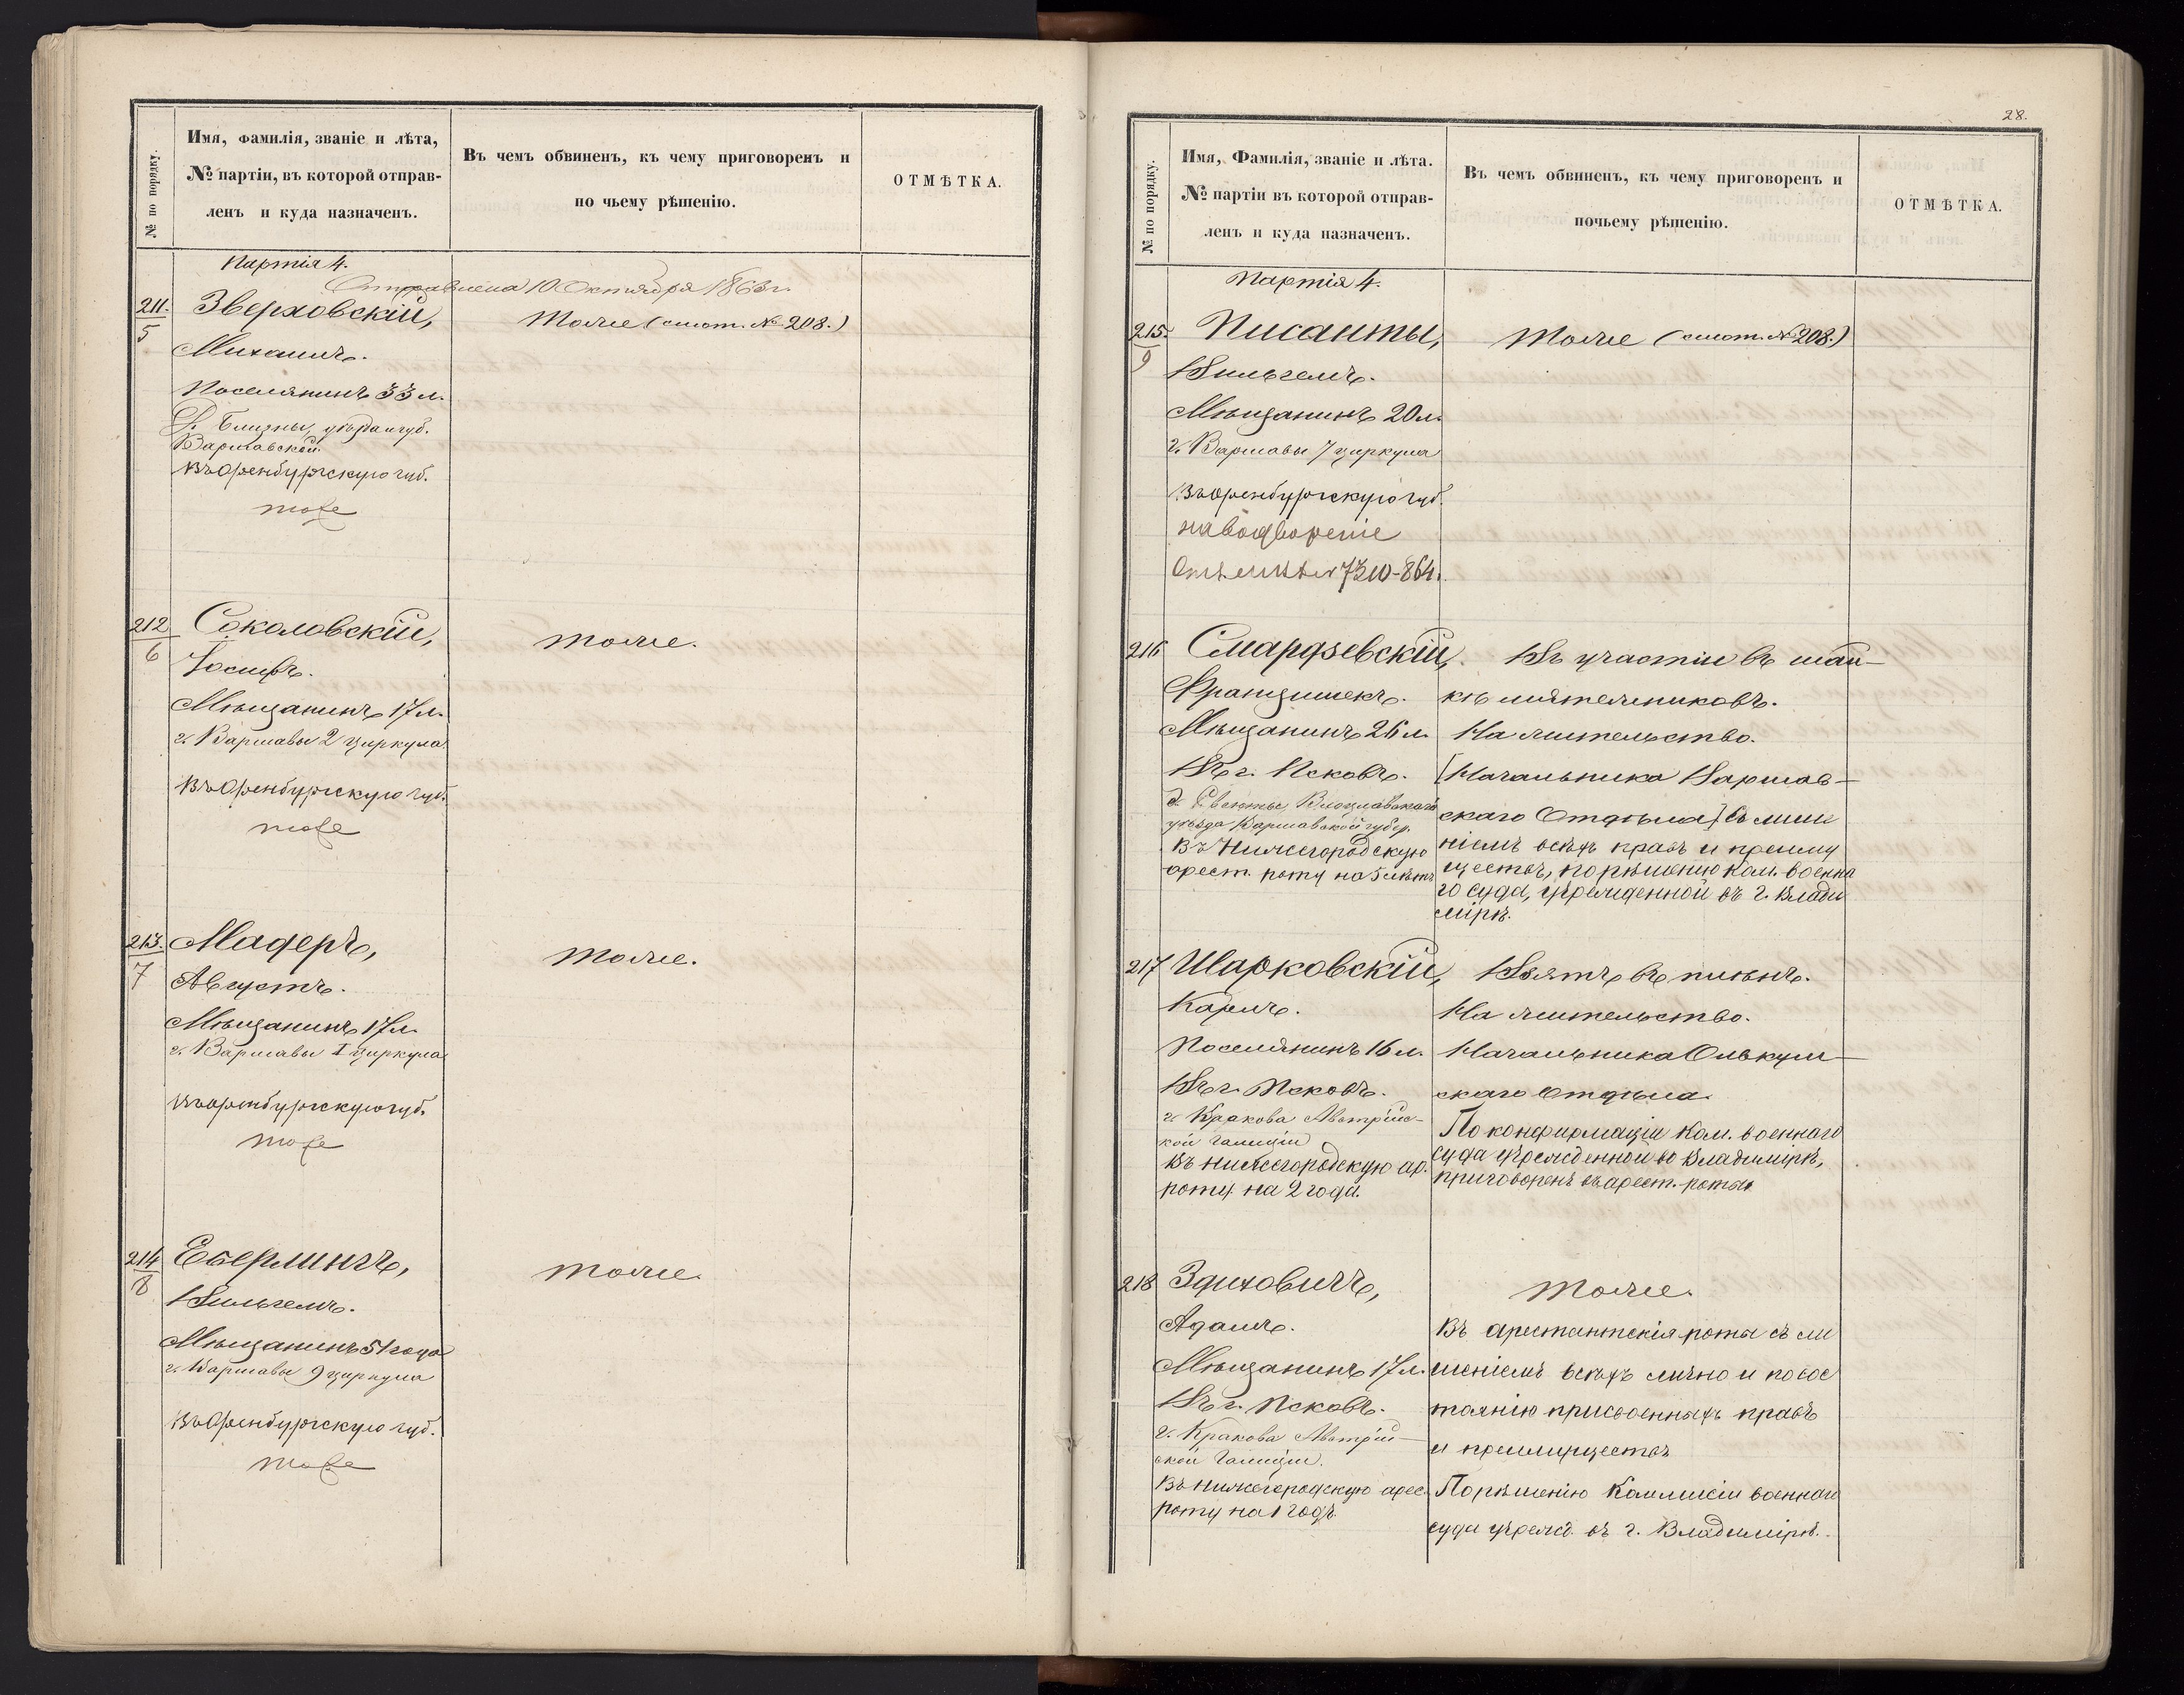 № по порядку.
Имя, фамилія, званіе и лѣта,
№ партіи, въ которой отправ-
ленъ и куда назначенъ.
Въ чемъ обвиненъ, къ чему приговоренъ и
по чьему рѣшенію.
ОТМѢТКА.
Партія 4.
Отправлена 10 Октября 1863 г.
211.
5
Зверховскій,
Михаилъ.
Поселянинъ 33 л.
Д. Близны, уѣзда и губ.
Варшавской.
Въ Оренбургскую губ.
тоже
Тоже (смот. № 208.)
212
6
Соколовскій,
Іосифъ.
Мѣщанинъ 17 л.
г. Варшавы 2 циркула
Въ Оренбургскую губ.
тоже
тоже.
213.
7
Мадеръ,
Августъ.
Мѣщанинъ 17 л.
г. Варшавы I циркула
Въ Оренбургскую губ.
тоже
тоже.
214
8
Еберлингъ,
Вильгелмъ.
Мѣщанинъ 51 года
г. Варшавы 9 циркула
Въ Оренбургскую губ.
тоже
тоже.
28.
№ по порядку.
Имя, Фамилія, званіе и лѣта.
№ партіи въ которой отправ-
ленъ и куда назначенъ.
Въ чемъ обвиненъ, къ чему приговоренъ и
почьему рѣшенію.
ОТМѢТКА.
Партія 4.
215.
9
Писанты,
Вильгелмъ.
Мѣщанинъ 20 л.
г. Варшавы 7 циркула
Въ Оренбургскую губ.
на водвореніе
7310-864.
Тоже (смот. № 208.)
216
Смардзевскій,
Францишекъ.
Мѣщанинъ 26 л.
Въ г. Псковъ.
Влоцлавскаго
уѣзда Варшавской губер.
Въ Нижегородскую
арест. роту на 5 лѣтъ
Въ участіи въ шай-
кѣ мятежниковъ.
На жительство.
[Начальника Варшав-
скаго Отдѣла] Съ лише
ніемъ всѣхъ правъ и преиму
ществъ, по рѣшенію Ком. военна
го суда, учрежденной въ г. Влади
мірѣ.
217
Шарковскій,
Карлъ.
Поселянинъ 16 л.
Въ г. Псковъ.
г. Кракова Австрійс-
кой Галиціи
Въ Нижегородскую ар.
роту на 2 года.
Взятъ въ плѣнъ.
На жительство.
Начальника Олькуш-
скаго Отдѣла.
По конфирмаціи Ком. военнаго
суда учрежденной во Владимірѣ,
приговоренъ въ арест. роты
218
Здиховичъ,
Адамъ.
Мѣщанинъ 17 л.
Въ г. Псковъ.
г. Кракова Австрій-
ской Галиціи.
Въ Нижегородскую арес.
роту на 1 годъ
Тоже.
Въ арестантскія роты съ ли
шеніемъ всѣхъ лично и по сос
тоянію присвоенныхъ правъ
и преимуществъ
По рѣшенію Коммисіи военнаго
суда учрежд. въ г. Владимірѣ.